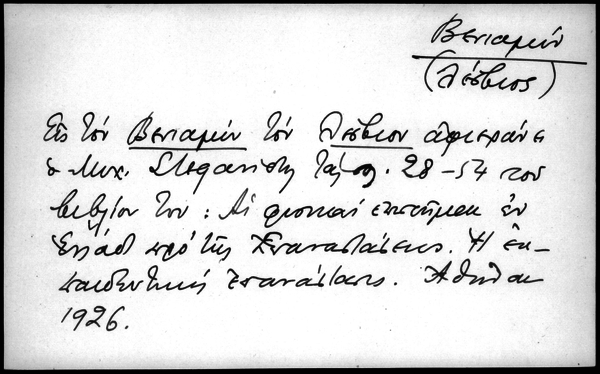 Βενιαμίν
(Λέσβιος)
Εἰς τὸν Βενιαμὶν τὸν Λέσβιον ἀφιερώνει
ὁ Μιχ. Στεφανίδης τὰς σσ. 28-54 τοῦ
βιβλίου του: Αἱ φυσικαὶ ἐπιστῆμαι ἐν
Ἑλλάδι πρὸ τῆς Ἐπαναστάσεως. Ἡ ἐκ-
παιδευτικὴ Ἐπανάστασις. Ἀθῆναι
1926.